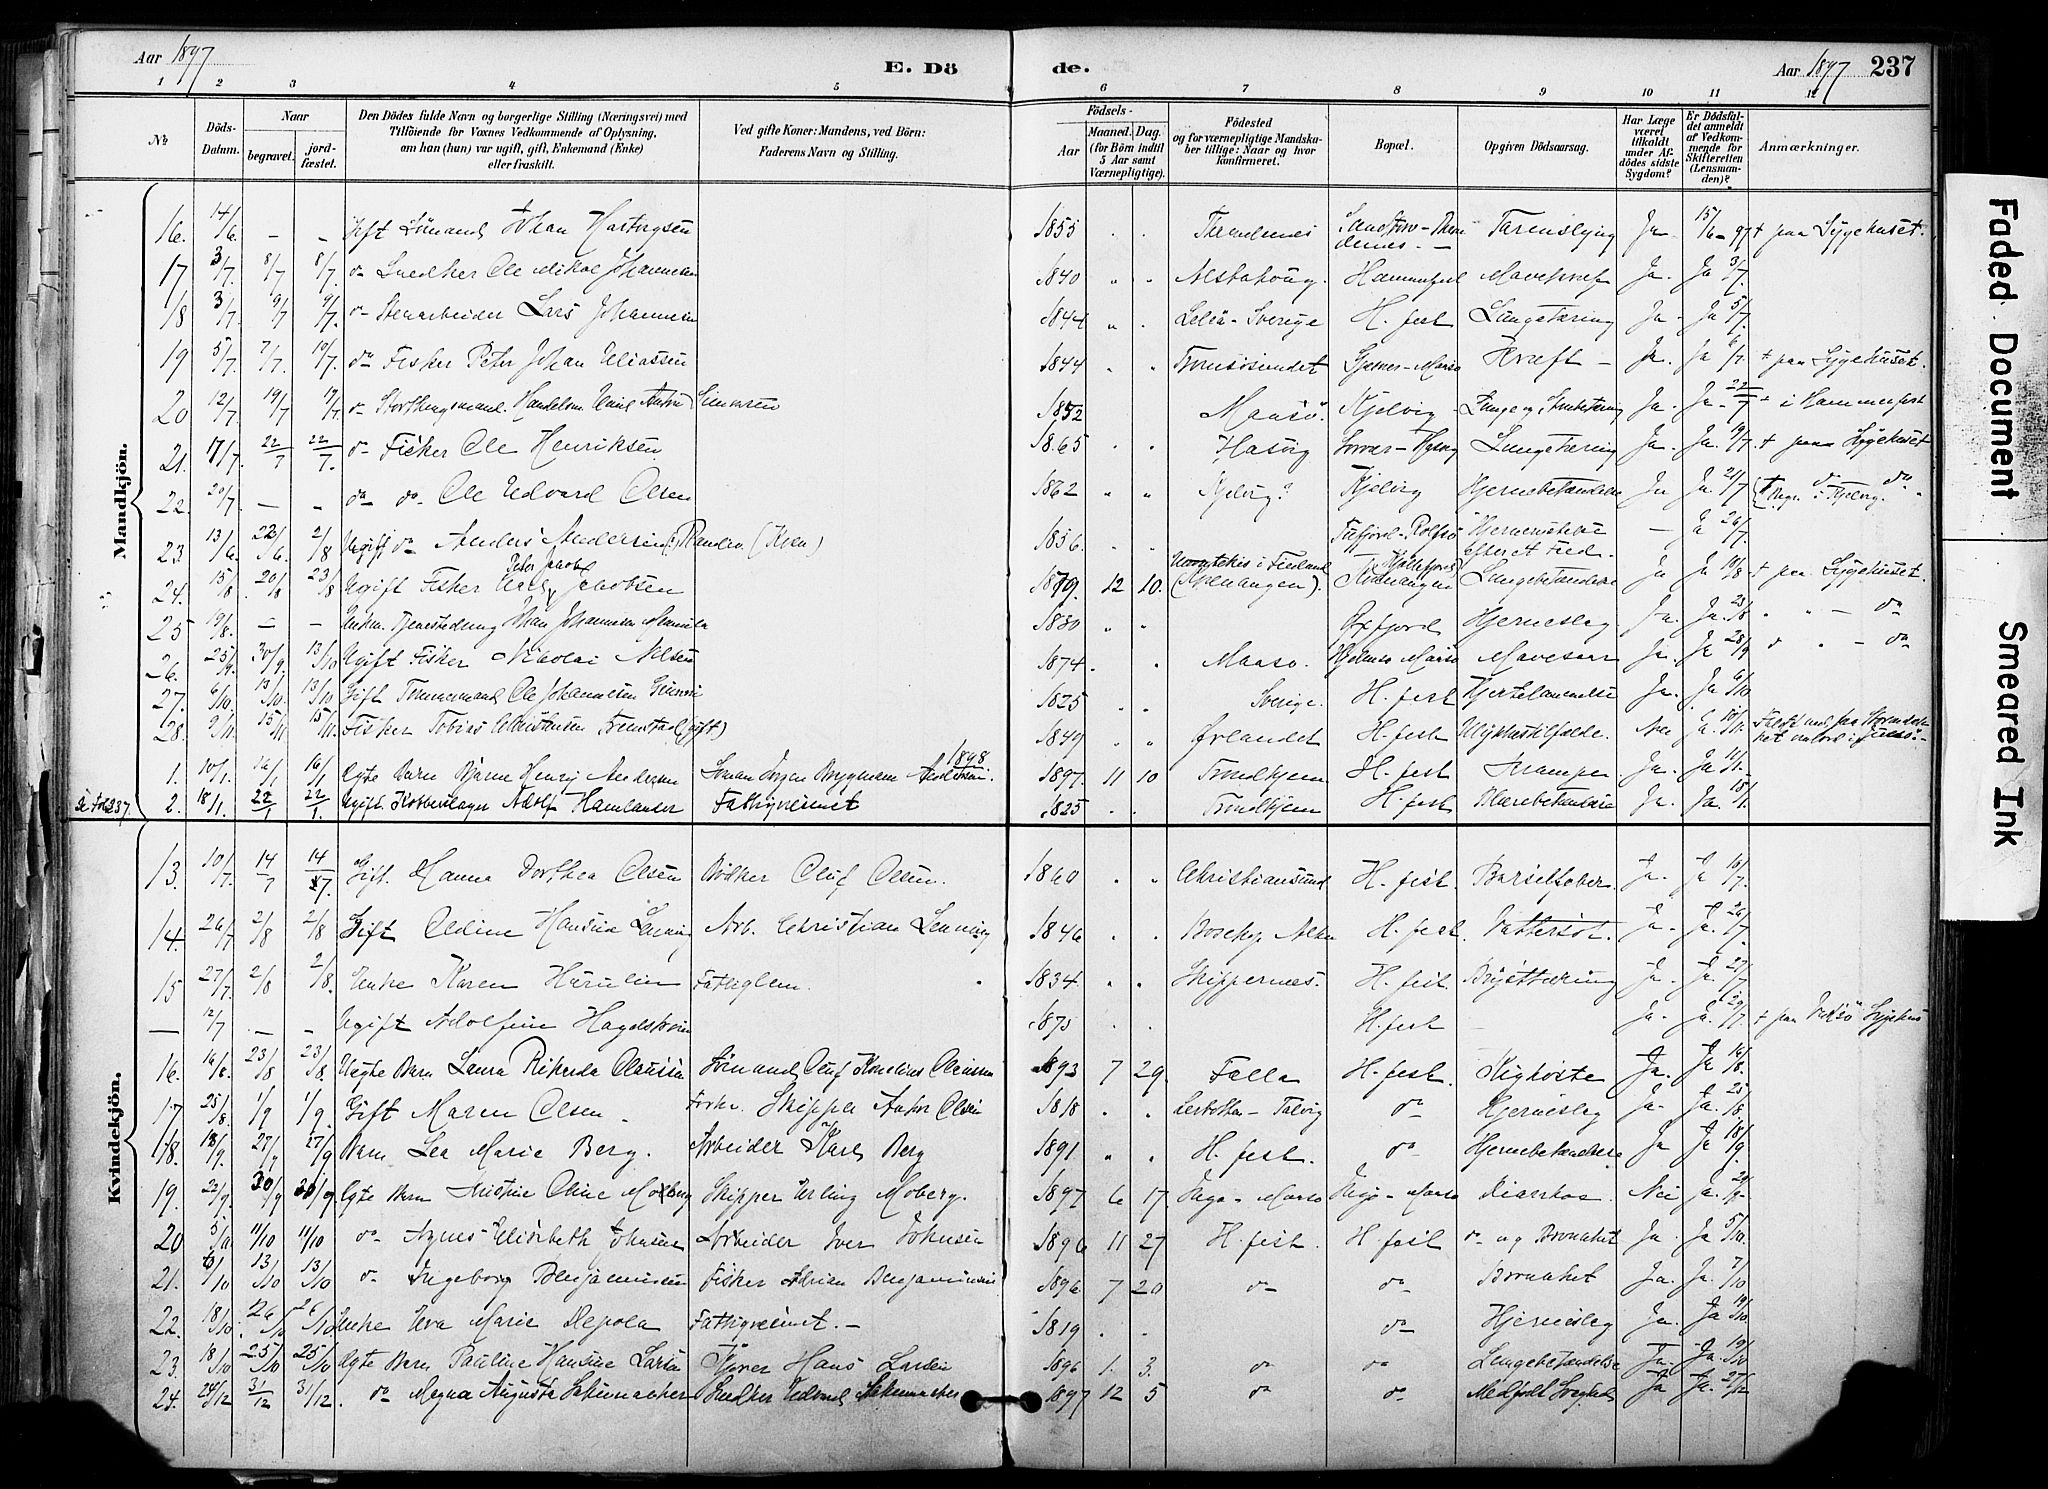 Aar 1897
E. Dö
de.
Aar 1897 237
1 2 3 4 5 6 7 8 9 10 11 12
No
Döds-Datum.
Naar
begravet.
jord-fæstet.
Den Dödes fulde Navn og borgerlige Stilling (Næringsvei) med
Tilföiende for Voxnes Vedkommende af Oplysning,
om han (hun) var ugift, gift, Enkemand (Enke)
eller fraskilt.
Ved gifte Koner: Mandens, ved Börn:
Faderens Navn og Stilling.
Födsels-
Aar
Maaned. Dag.
(for Börn indtil
5 Aar samt
Værnepligtige).
Födested
og for værnepligtige Mandska-
ber tillige: Naar og hvor
konfirmeret.
Bopæl.
Opgiven Dödsaarsag.
Har Læge
været
tilkaldt
under Af-
dödes sidste
Sygdom?
Er Dödsfal-
det anmeldt
af Vedkom-
mende for
Skifteretten
(Lensman-
den)?
Anmærkninger.
Mandkjön.
16. 14/6. – – Gift Sömand Johan Hartvigsen 1855 Trondenes Tarmslyng Ja 15/6 – 97 + paa Sygehuset.
17 3/7. 8/7 8/7. do Snedker Ole Mikal Johannesen 1840 Alstahoug. Hammerfest Mavekræft Ja. Ja 3/7.
18 3/7. 9/7 9/7. do Stenarbeider Lars Johannesen 1844 Luleå – Sverige H. fest Lungetæring Ja. Ja 5/7.
19 5/7. 7/7. 10/7. do Fisker Peter Johan Eliassen 1844 Tromsösundet Kræft – Ja. Ja 6/7. + paa Sygehuset.
20 12/7. 19/7 19/7. do Storthingsmand. Handelsm. Emil Anton Simonsen 1852 Maasö. Kjelvig Ja. Ja 22/7 + i Hammerfest
21. 17/7. 22/7 22/7. do Fisker Ole Henriksen 1865 Hasvig Lungetæring Ja. Ja. 19/7. + paa Sygehuset
22. 20/7. – – do do Ole Edvard Olsen 1862 Kjelvig? Kjelvig Hjernebetændelse Ja Ja 21/7 do do
23 13/6. 23/6. 2/8 Ugift do Anders Andersen (Kven) 1856. Tufjord – Rolfsö – Ja 26/7
24. 15/8 20/8 23/8 Ugift Fisker Peter Jacob Jakobsen 1879. 12 10. Lungebetændelse Ja Ja 10/8 + paa Sygehuset.
25 19/8. – – Enkm. Johan Johannesen 1830 Oxfjord Hjerneslag Ja. Ja. 23/8 – do
26. 25/9. 30/9. 13/10 Ugift Fisker Nikolai Nilsen 1874. Maasö. Hjelmsö Maasö Mavesaar Ja. Ja 28/9 – do
27. 6/10. 13/10. 13/10 Gift Tømmermand Ole Johannesen 1825 Sverige. H. fest Hjertelammelse Ja. Ja 6/10
28. 9/11 15/11 15/11. Fisker Tobias Christensen Tremstad (gift) 1849 Ørlandet H. fest Ulykkestilfælde. Nei Ja.
1898
1. 10/1. 16/1 16/1 Ægte Barn Bjarne Henry Andersen Sömand Jørgen Bryggmann Andersen. 1897. 11 10 Trondhjem H. fest Kramper Ja. Ja 11/1.
Se Fol 237. 2. 18/1. 22/1 22/1. Ugift Kobberslager Adolf Hamlander Fattigvæsenet 1825 Trondhjem H. fest Blærebetændelse Ja. Ja. 18/1.
Kvindekjön.
13. 10/7. 14/7 14/7. Gift. Hanna Dorthea Olsen Bödker Oluf Olsen. 1860 Christiansund H. fest. Barselfeber Ja. Ja 10/7.
14. 26/7 2/8 2/8 Gift Oldine Hansine Lenning Arb. Christian Lenning 1846 Bosekop Alten H. fest. Vattersot. Ja. Ja. 26/7.
15 27/7. 2/8 2/8. Enke Karen Fattiglem. 1834. Skippernes. H. fest Brysttæring Ja. Ja. 27/7
– 12/7 – – Ugift Adolfine 1873 H. fest – Ja. Ja. 20/7. + paa Vadsö Sygehus
16. 16/8. 23/8 23/8. Uægte Barn Laura Rikarda Claussen Sömand Oluf Kornelius Claussen 1893 7 29. Falla H. fest. Kighoste Ja. Ja 16/8.
17 25/8. 1/9 1/9. Gift Maren Olsen. Skipper Olsen 1818 Talvig do Hjerneslag Ja. Ja. 25/8.
18. 18/9. 27/9 27/9 Barn Lea Marie Berg. Arbeider Karl Berg 1891. H. fest. do Hjernebetændelse Ja Ja 18/9.
19. 22/9. 30/9 30/9 Ægte Barn Kristine Oline Moberg Skipper Erling Moberg. 1897 6 17. Ingö – Maasö Ingö – Maasö Diarrhoe. Nei Ja.
20 5/10 11/10 11/10 do Agnes Elisabeth Johnsen Arbeider Iver Johnsen 1896 11 27 H. fest. H. fest do og Bronchit Ja. Ja 5/10.
21. 6/10 13/10 13/10 do Ingeborg Benjaminsen Fisker Adrian Benjaminsen 1896 7 20 do do Bronchit Ja. Ja. 7/10
22. 18/10. 26/10 26/10 Enke Eva Marie Depola Fattigvæsenet. – 1819 do Hjerneslag Ja. Ja 19/10
23. 18/10 25/10 25/10 Ægte Barn Pauline Hansine Larsen Hans Larsen 1896 1. 3. do do Lungebetændelse Ja. Ja. 19/10
24. 24/12 31/12 31/12. do Magna Augusta Schumacher Snedker Edvard Schumacher 1897 12 5 do do Medfödt Svaghed Ja Ja. 27/12
Faded Document
Smeared Ink